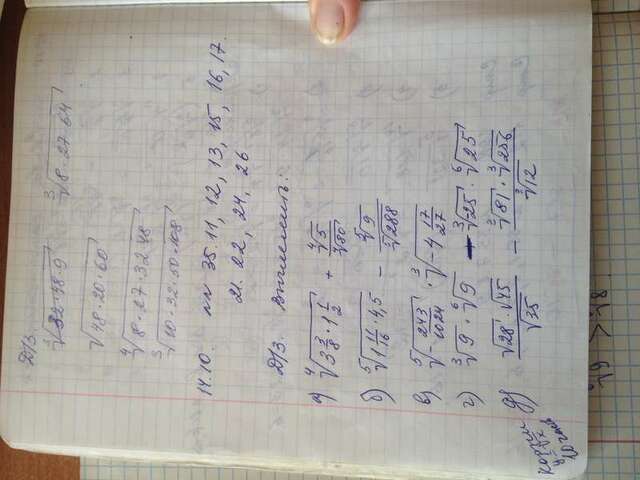 Д/З.
∛(32·48·9) ∛(8·27·64)
√(48·20·60)
∜(8·27·32·48)
∛(10·32·50·108)
14.10. №№ 35.11, 12, 13, 15, 16, 17.
21. 22, 24, 26
Д/З. Вычислить:
а) ∜(3 3/8 · 1 1/2) + ∜5/∜80
б) ⁵√(1 11/16 · 4,5) − ⁵√9/⁵√288
в) ⁵√(−243/1024) · ∛(−4 17/27)
г) ∛9 · ⁶√9 − ∛(−25) · ⁶√25
д) (√28 · √45)/√35 − (∛81 · ∛256)/∛12
Корни
x
10 часов
√9 > √8